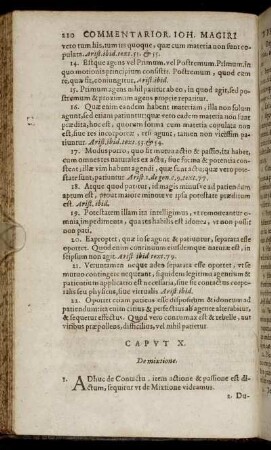 220 COMMENTARIOR. IOH. MAGIRI
vero tum his, tum iis quoque, quæ cum materia non sunt copulata. Arist. ibid. text. 53. & 55.
14. Estque agens vel Primum, vel Postremum. Primum, in quo motionis principium consistit. Postremum, quod cum re, quæ fit, coniungitur. ibid.
15. Primum agens nihil patitur ab eo, in quod agit, sed postremum & proximum agens proprie repatitur.
16. Quæ enim eandem habent materiam, illa non solum agunt, sed etiam patiuntur: quæ vero eadem materia non sunt prædita, hoc est, quorum forma cum materia copulata non est, siue res incorporeæ, etsi agunt, tamen non vicissim patiuntur. Arist. ibid. text. 53 & 54.
17. Modus porro, quo fit mutua actio & passio, ita habet, cum omnes res naturales ex actu, siue forma & potentia constent: illæ vim habent agendi, quæ sunt actu: quæ vero potestate sunt, patiuntur Arist. 1. de gen. c. 9. text. 77.
18. Atque quod potest, id magis minusve ad patiendum aptum est, prout maiore minorve ipsa potestate præditum est. Arist. ibid.
19. Potestatem illam ita intelligimus, vt remoueantur omnia impedimenta, quæ tes habilis est idonea, vt non possit non pati.
20. Exproptet, quæ inter se agunt & patiuntur, separata esse oportet. Quod enim continuum eiusdemque naturæ est, in seipsum non agit. Arist. ibid. text. 79.
21. Veruntamen neque adeo separata esse oportet, vt se mutuo contingere nequeant, siquidem legitima agentium & patientium applicatio est necessaria, siue sit contactus corporalis seu physicus, siue virtualis Arist. ibid.
22. Oportet etiam patiens esse dispositum & idoneum ad patiendum, cuius vires & potestas ab agente alterabitur, & sequetur effectus. Quod vero contumax est & rebelle, aut viribus præpollens, difficilius, vel nihil patietur.
CAPVT X.
De mixtione.
1. ADhuc de Contactu, item actione & passione est dictum, sequitur vt de Mixtione videamus.
2. Du-